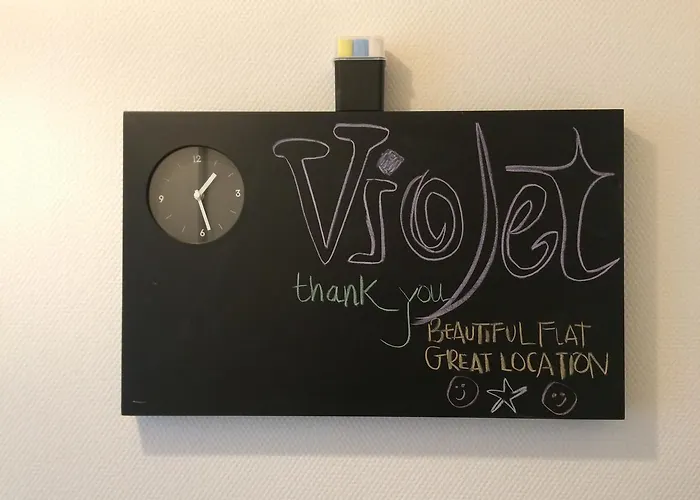 12
9 3
6
Violet
thank you
BEAUTIFUL FLAT
GREAT LOCATION